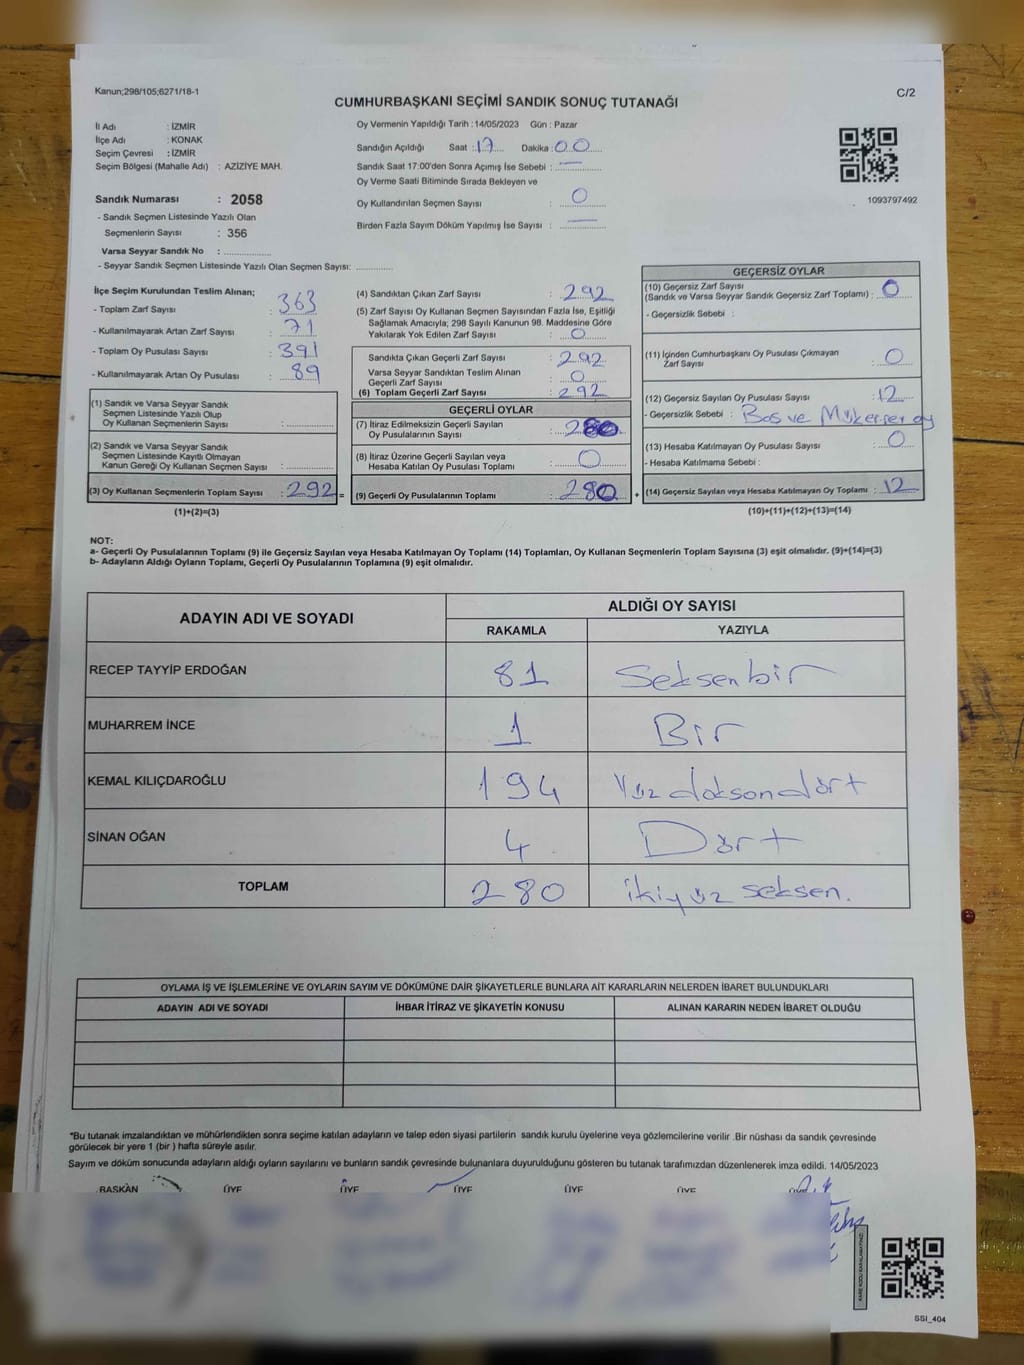 Kanun;298/105;6271/18-1
C/2
CUMHURBAŞKANI SEÇİMİ SANDIK SONUÇ TUTANAĞI
İl Adı : İZMİR
İlçe Adı : KONAK
Seçim Çevresi : İZMİR
Seçim Bölgesi (Mahalle Adı) : AZİZİYE MAH.
Sandık Numarası : 2058
- Sandık Seçmen Listesinde Yazılı Olan
Seçmenlerin Sayısı : 356
Varsa Seyyar Sandık No : ..............
- Seyyar Sandık Seçmen Listesinde Yazılı Olan Seçmen Sayısı: ...........
Oy Vermenin Yapıldığı Tarih :14/05/2023 Gün : Pazar
Sandığın Açıldığı Saat : 17 Dakika : 00
Sandık Saat 17:00'den Sonra Açımış İse Sebebi : —
Oy Verme Saati Bitiminde Sırada Bekleyen ve
Oy Kullandırılan Seçmen Sayısı : 0
Birden Fazla Sayım Döküm Yapılmış İse Sayısı : —
1093797492
İlçe Seçim Kurulundan Teslim Alınan;
- Toplam Zarf Sayısı : 363
- Kullanılmayarak Artan Zarf Sayısı : 71
- Toplam Oy Pusulası Sayısı : 391
- Kullanılmayarak Artan Oy Pusulası : 89
(1) Sandık ve Varsa Seyyar Sandık
Seçmen Listesinde Yazılı Olup
Oy Kullanan Seçmenlerin Sayısı : ..............
(2) Sandık ve Varsa Seyyar Sandık
Seçmen Listesinde Kayıtlı Olmayan
Kanun Gereği Oy Kullanan Seçmen Sayısı : ..............
(3) Oy Kullanan Seçmenlerin Toplam Sayısı : 292 =
(1)+(2)=(3)
(4) Sandıktan Çıkan Zarf Sayısı : 292
(5) Zarf Sayısı Oy Kullanan Seçmen Sayısından Fazla İse, Eşitliği
Sağlamak Amacıyla; 298 Sayılı Kanunun 98. Maddesine Göre
Yakılarak Yok Edilen Zarf Sayısı : 0
Sandıkta Çıkan Geçerli Zarf Sayısı : 292
Varsa Seyyar Sandıktan Teslim Alınan
Geçerli Zarf Sayısı : 0
(6) Toplam Geçerli Zarf Sayısı : 292
GEÇERLİ OYLAR
(7) İtiraz Edilmeksizin Geçerli Sayılan
Oy Pusulalarının Sayısı : 280
(8) İtiraz Üzerine Geçerli Sayılan veya
Hesaba Katılan Oy Pusulası Toplamı : 0
(9) Geçerli Oy Pusulalarının Toplamı : 280 +
GEÇERSİZ OYLAR
(10) Geçersiz Zarf Sayısı
(Sandık ve Varsa Seyyar Sandık Geçersiz Zarf Toplamı) : 0
- Geçersizlik Sebebi :
(11) İçinden Cumhurbaşkanı Oy Pusulası Çıkmayan
Zarf Sayısı : 0
(12) Geçersiz Sayılan Oy Pusulası Sayısı : 12
- Geçersizlik Sebebi : Bos ve Mükerrer oy
(13) Hesaba Katılmayan Oy Pusulası Sayısı : 0
- Hesaba Katılmama Sebebi :
(14) Geçersiz Sayılan veya Hesaba Katılmayan Oy Toplamı : 12
(10)+(11)+(12)+(13)=(14)
NOT:
a- Geçerli Oy Pusulalarının Toplamı (9) ile Geçersiz Sayılan veya Hesaba Katılmayan Oy Toplamı (14) Toplamları, Oy Kullanan Seçmenlerin Toplam Sayısına (3) eşit olmalıdır. (9)+(14)=(3)
b- Adayların Aldığı Oyların Toplamı, Geçerli Oy Pusulalarının Toplamına (9) eşit olmalıdır.
ADAYIN ADI VE SOYADI ALDIĞI OY SAYISI
RAKAMLA YAZIYLA
RECEP TAYYİP ERDOĞAN 81 Seksenbir
MUHARREM İNCE 1 Bir
KEMAL KILIÇDAROĞLU 194 Yüzdoksandört
SİNAN OĞAN 4 Dört
TOPLAM 280 ikiyüz seksen.
OYLAMA İŞ VE İŞLEMLERİNE VE OYLARIN SAYIM VE DÖKÜMÜNE DAİR ŞİKAYETLERLE BUNLARA AİT KARARLARIN NELERDEN İBARET BULUNDUKLARI
ADAYIN ADI VE SOYADI İHBAR İTİRAZ VE ŞİKAYETİN KONUSU ALINAN KARARIN NEDEN İBARET OLDUĞU
*Bu tutanak imzalandıktan ve mühürlendikten sonra seçime katılan adayların ve talep eden siyasi partilerin sandık kurulu üyelerine veya gözlemcilerine verilir .Bir nüshası da sandık çevresinde
görülecek bir yere 1 (bir ) hafta süreyle asılır.
Sayım ve döküm sonucunda adayların aldığı oyların sayılarını ve bunların sandık çevresinde bulunanlara duyurulduğunu gösteren bu tutanak tarafımızdan düzenlenerek imza edildi. 14/05/2023
BAŞKAN ÜYE ÜYE ÜYE ÜYE ÜYE
SSI_404